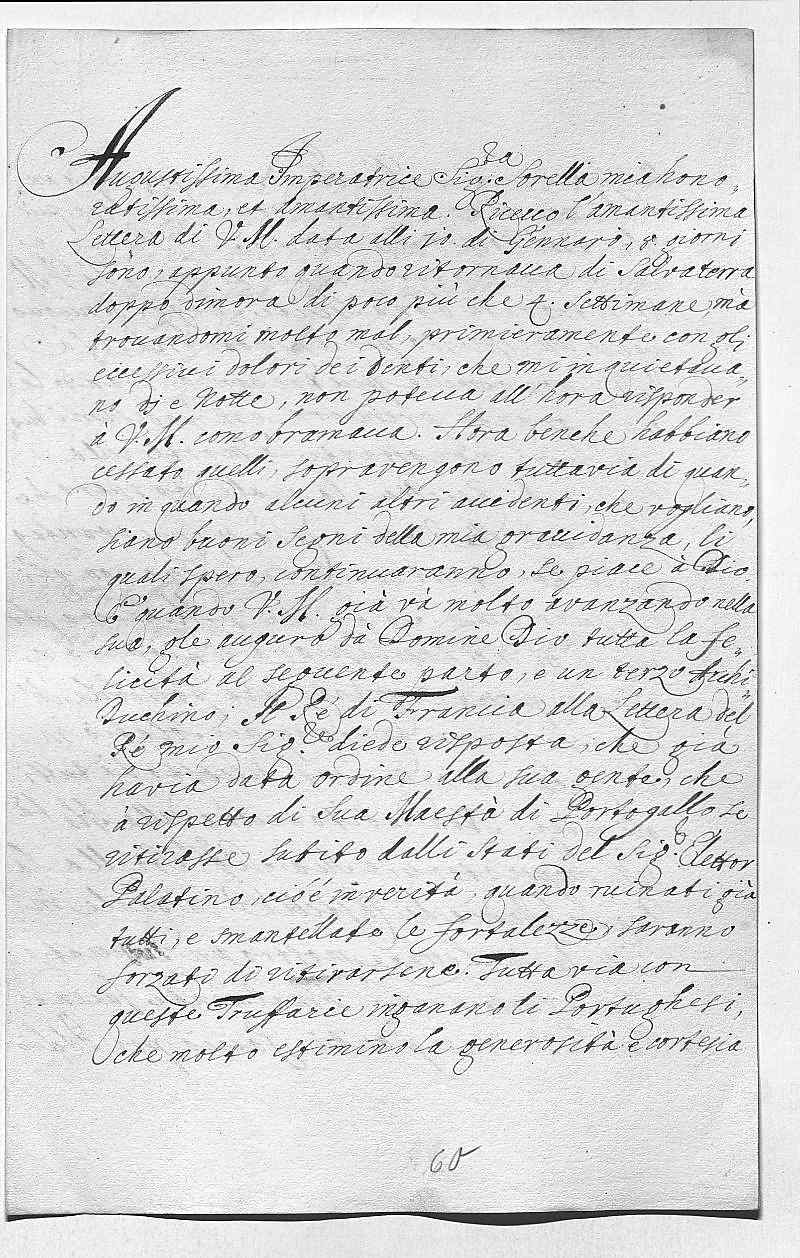 Augustissima Imperatrice Sig.ra Sorella mia hono„
ratissima, et Amantissima. Ricevo l'amantissima
Lettera di V. M. data alli 10. di Gennaro, 8 giorni
sono, appunto quando ritornava di Salvaterra
doppo dimora di poco più che 4. Settimane, mà
trovandomi molto mal, primieramente con gli
eccessivi dolori dei Denti, che mi inquietava„
no dj e Notte, non poteva all'hora risponder
à V. M. como bramava. Hora benche habbiano
cessato quelli, sopravengono tuttavia di quan„
do in quando alcuni altri accidenti, che vogliano,
siano buoni segni della mia gravidanza, li
quali spero, continuaranno, se piace à Dio.
E quando V. M. già và molto avanzando nella
sua, gle auguro dà Domine Dio tutta la fe„
licità al sequente parto, e un terzo Archi„
Duchino; Il Ré di Francia alla Lettera del
Ré mio Sig.re diede risposta, che già
havia data ordine alla sua gente, che
à rispetto di Sua Maestà di Portogallo se
ritirasse subito dalli Stati del Sig.r Elettor
Palatino, cióé in verità, quando ruinati già
tutti, e smantellate le fortalezze, saranno
forzati di ritirarsene. Tutta via con
queste Truffarie inganano li Portughesi,
che molto estimino la generosità e cortesia
60